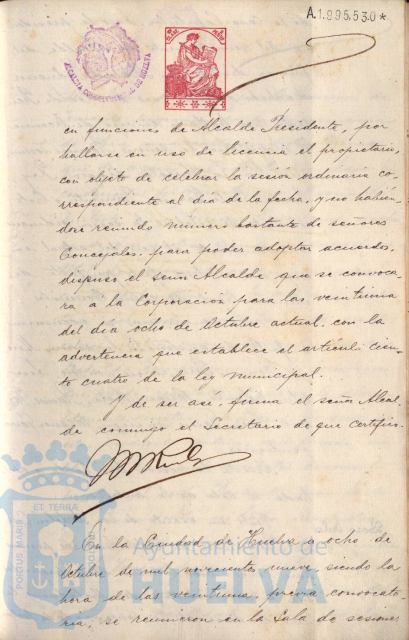 A.1.995.530*
ALCALDIA CONSTITUCIONAL DE HUELVA
en funciones de Alcalde Presidente, por
hallarse en uso de licencia el propietario,
con objeto de celebrar la sesión ordinaria co-
rrespondiente al dia de la fecha, y no habien-
dose reunido número bastante de señores
Concejales, para poder adoptar acuerdos,
dispuso el señor Alcalde que se convoca-
ra á la Corporación para las veintiuna
del dia ocho de Octubre actual, con la
advertencia que establece el artículo cien-
to cuatro de la ley municipal.
Y de ser así, firma el señor Alcal-
de conmigo el Secretario de que certifico.
En la Ciudad de Huelva á ocho de
Octubre de mil novecientos nueve, siendo la
hora de las veintiuna, previa convocato-
ria, se reunieron en la Sala de sesiones
PORTUS MARIS ET TERRA
Ayuntamiento de
HUELVA